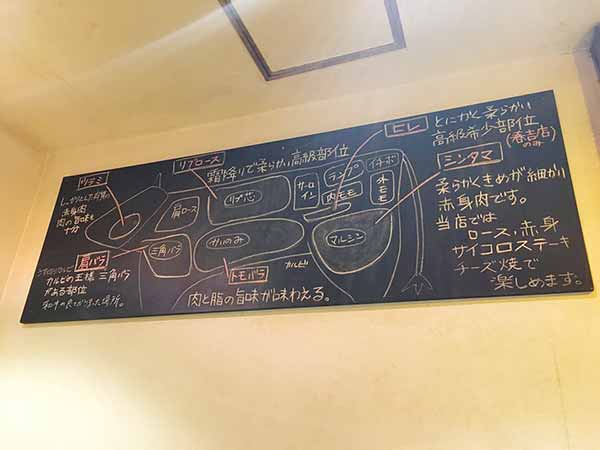 ヒレ
とにかく柔らかい
高級希少部位
(春吉店のみ)
リブロース
霜降りで柔らかい高級部位
シンタマ
柔らかくきめが細かい
赤身肉です。
当店では
ロース・赤身
サイコロステーキ
チーズ焼で
楽しめます。
ウデミ
しっかりとした肉質の
赤身肉
肉の旨味も
十分
肩ロース
リブ芯
サーロイン
ランプ
イチボ
内モモ
外モモ
三角バラ
かいのみ
マルシン
カルビ
肩バラ
カルビの王様 三角バラ
がある部位
トモバラ
肉と脂の旨味が味わえる。